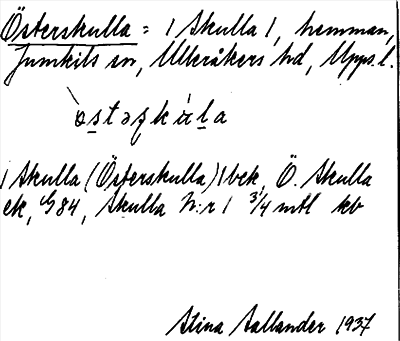 Österskulla = (Skulla), hemman,
Jumkils sn, Ulleråkers hd, Upps.l.
östəʂkùla
(Skulla (Österskulla)) bek, Ö. Skulla
ek, G 84, Skulla N:r 1 3/4 mtl kb
Stina Sallander 1937